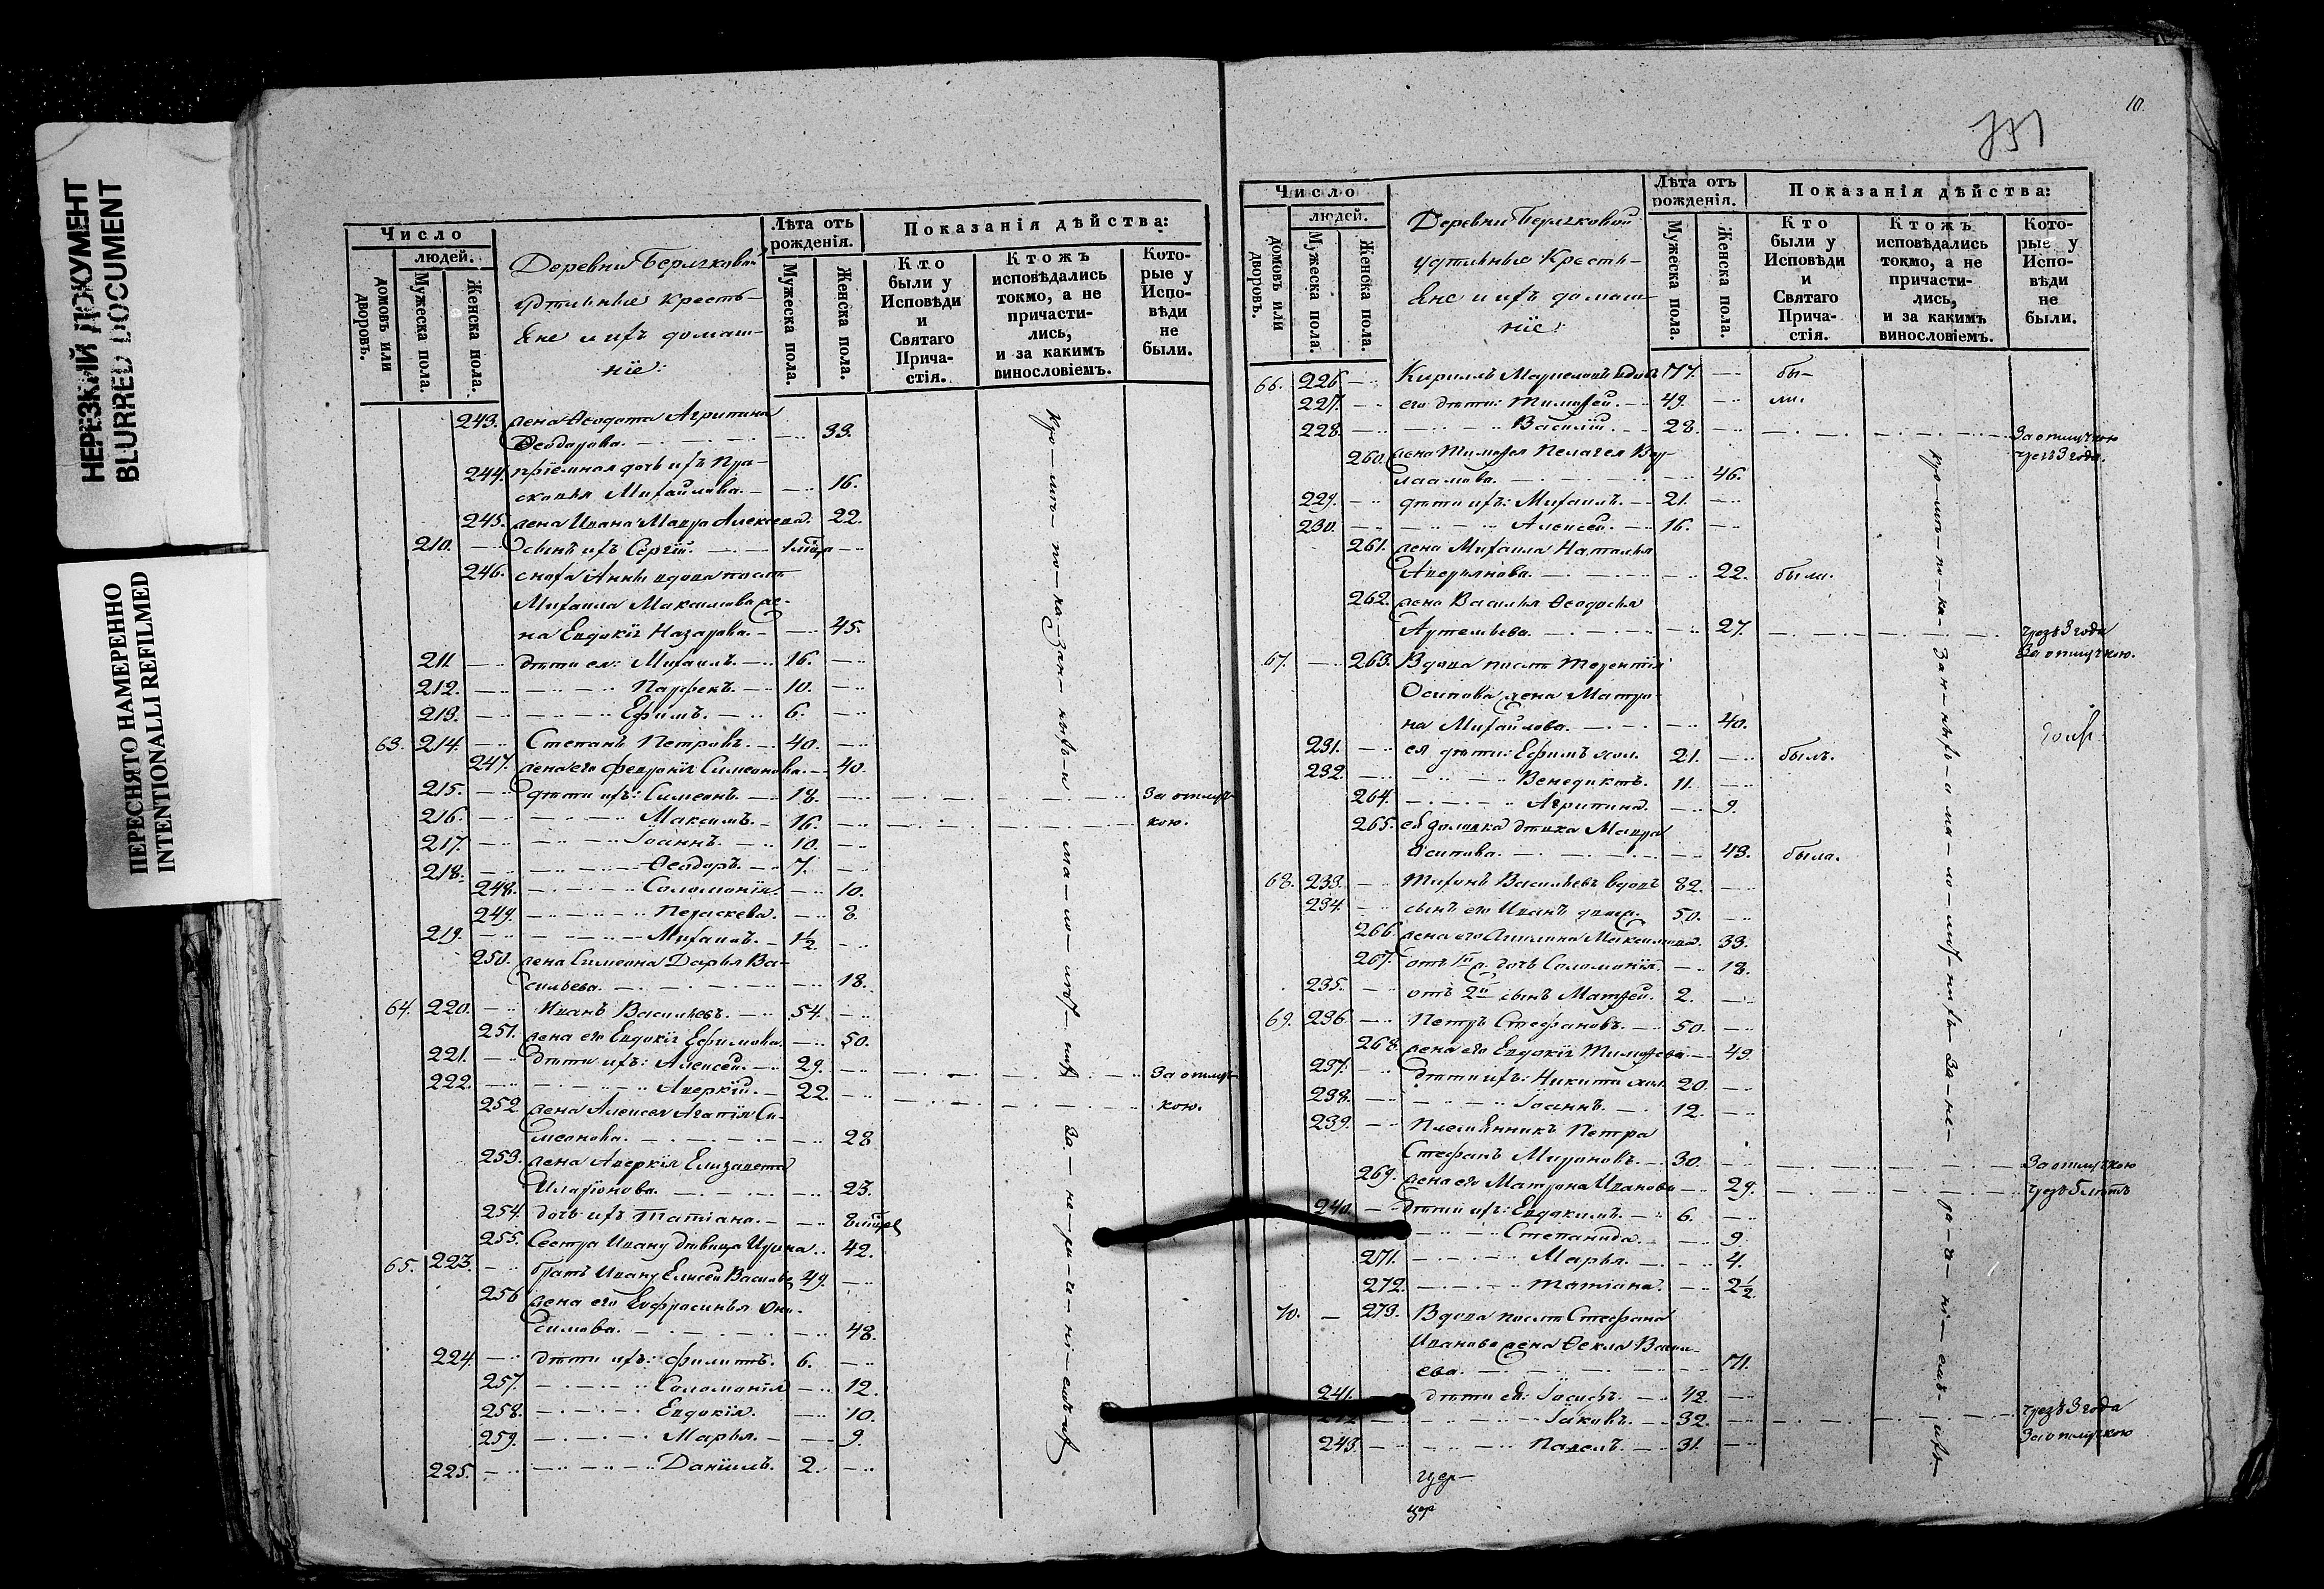 НЕРЕЗКИЙ ДОКУМЕНТ
BLURRED DOCUMENT
ПЕРЕСНЯТО НАМЕРЕННО
INTENTIONALLI REFILMED
Число
людей.
домовъ или дворовъ.
Мужеска пола.
Женска пола.
Деревни
удѣльные кресть-
яне и ихъ домаш-
ніе:
Лѣта отъ рожденія.
Мужеска пола.
Женска пола.
Показанія дѣйства:
Кто были у Исповѣди и Святаго Причастія.
Ктожъ исповѣдались токмо, а не причастились, и за какимъ винословіемъ.
Которые у Исповѣди не были.
243. жена Ѳеодота Агрипина
Ѳеодорова. 33.
244. пріемная дочь ихъ Пра-
сковья Михайлова. 16.
245. жена Ивана Мавра Алексеева. 22.
210. сынъ ихъ Сергій.
246. сноха Анны вдова послѣ
Михаила Максимова же-
на Евдокія Назарова. 45.
211. дѣти ея: Михаилъ. 16.
212. Парфенъ. 10.
213. Ефимъ. 6.
63. 214. Степанъ Петровъ. 40.
247. жена его Февронія Симеонова. 40.
215. дѣти ихъ: Симеонъ. 18. За отлуч-
216. Максимъ. 16. кою.
217. Іоаннъ. 10.
218. Ѳеодоръ. 7.
248. Соломонія. 10.
249. Параскева. 8.
219. Михаилъ. 1½
250. жена Симеона Дарья Ва-
сильева. 18.
64. 220. Иванъ Васильевъ. 54.
251. жена его Евдокія Ефимова. 50.
221. дѣти ихъ: Алексей. 29. За отлуч-
222. Аверкій. 22. кою.
252. жена Алексея Агапія Си-
меонова. 28
253. жена Аверкія Елизавета
Иларіонова. 23.
254. дочь ихъ Татіана.
255. Сестра Ивану дѣвица Ирина. 42.
65. 223. братъ Ивану Елисей Васильевъ 49.
256 жена его Евфросинья Они-
симова. 48.
224. дѣти ихъ: Филиппъ. 6.
257. Соломонія 12.
258. Евдокія. 10.
259. Марья. 9.
225. Даніилъ. 2.
10.
Число
людей.
домовъ или дворовъ.
Мужеска пола.
Женска пола.
Деревни
удѣльные Кресть-
яне и ихъ домаш-
ніе:
Лѣта отъ рожденія.
Мужеска пола.
Женска пола.
Показанія дѣйства:
Кто были у Исповѣди и Святаго Причастія.
Ктожъ исповѣдались токмо, а не причастились, и за какимъ винословіемъ.
Которые у Исповѣди не были.
66. 226 Кириллъ вдовъ 77. бы-
227. его дѣти: Тимоѳей. 49. ли.
228. Василій. 28. За отлучкою
чрезъ 3 года.
260. жена Тимоѳея Пелагея Вар-
лаамова. 46.
229. дѣти ихъ: Михаилъ. 21.
230. Алексей. 16.
261. жена Михаила Наталья
Аверьянова. 22. были.
262. жена Василья Ѳеодосья
Артемьева. 27. чрезъ 3 года
За отлучкою.
67. 263. Вдова послѣ Терентія
Осипова жена Матро-
на Михайлова. 40.
231. ея дѣти: Ефимъ хол. 21. былъ.
232. Венедиктъ. 11.
264. Агрипина. 9.
265. ея золовка дѣвка Мавра
Осипова. 43. была.
68. 233. Тихонъ Васильевъ вдовъ 82.
234. сынъ его Иванъ 50.
266. жена его Акилина Максимова. 33.
267. отъ 1й ж. дочь Соломонія. 18.
235. отъ 2й сынъ Матѳей. 2.
69. 236 Петръ Стефановъ. 50.
268. жена его Евдокія Тимоѳеева. 49.
237. дѣти ихъ: Никита хол. 20.
238. Іоаннъ. 12.
239. Племянникъ Петра
Стефанъ Мироновъ. 30. За отлучкою
269. жена его Матрона Иванова 29. чрезъ 5 лѣтъ
240. дѣти ихъ: Евдокимъ. 6.
Степанида. 9.
271. Марья. 4.
272. Татіана. 2½
70. 273. Вдова послѣ Стефана
Иванова жена Ѳекла Василь-
ева. 71.
241. дѣти ея: Іосифъ. 42.
242 Іаковъ. 32. чрезъ 3 года
243. Павелъ. 31. За отлучкою